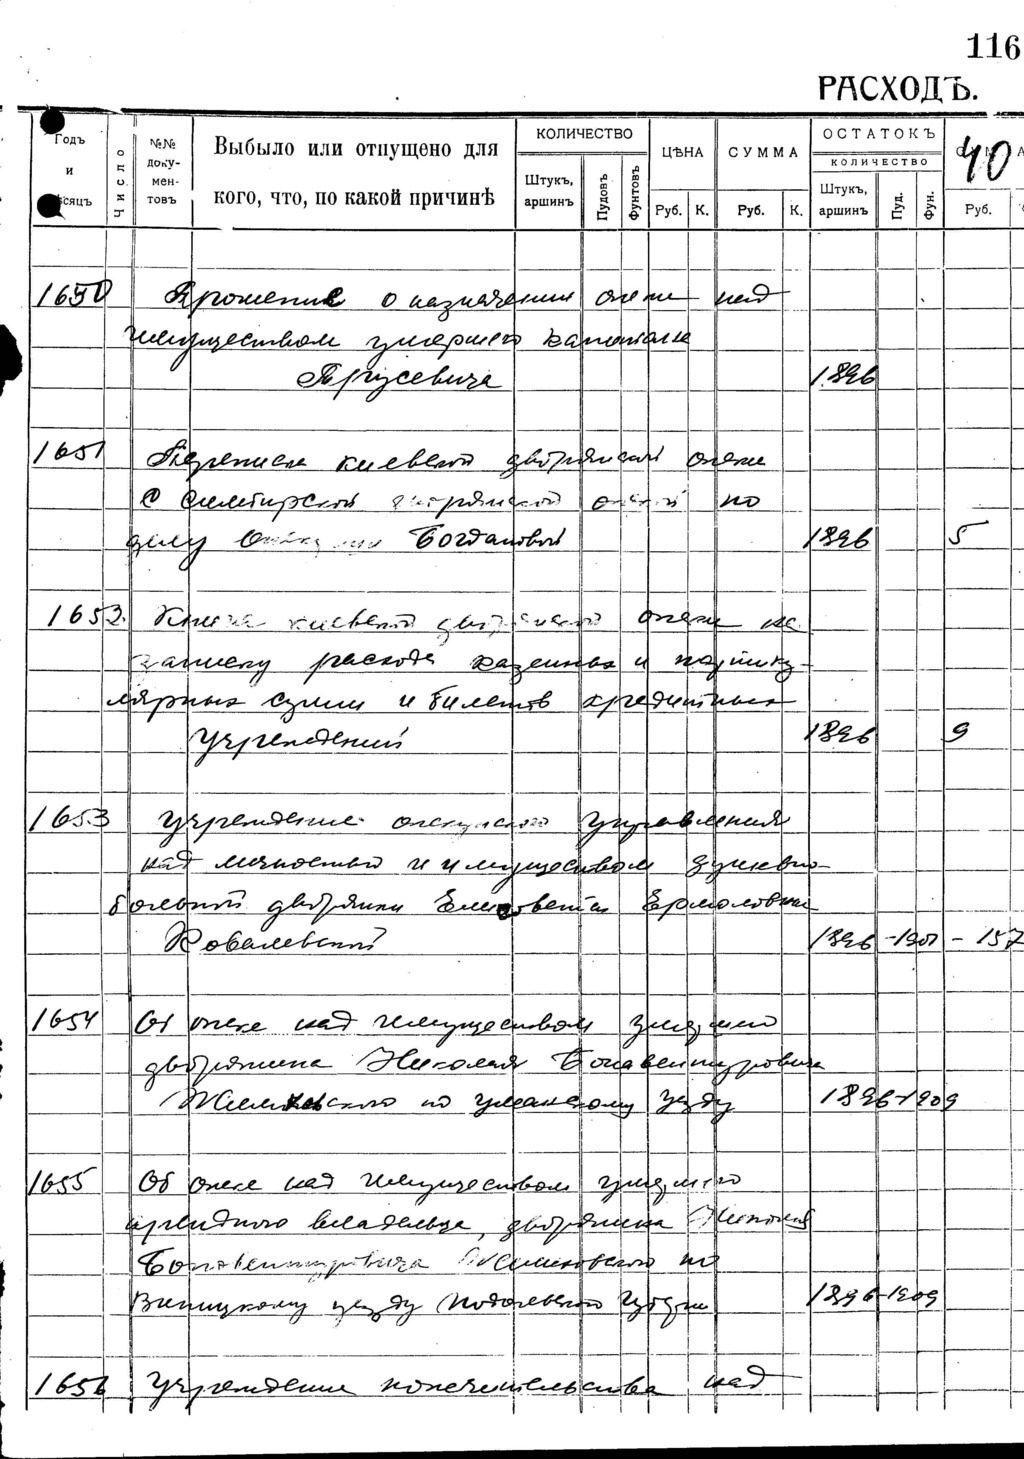 116
РАСХОДЪ.
Годъ и мѣсяцъ
Число
№№ доку-мен-товъ
Выбыло или отпущено для
кого, что, по какой причинѣ
КОЛИЧЕСТВО
Штукъ, аршинъ
Пудовъ
Фунтовъ
ЦѢНА
Руб. К.
СУММА
Руб. К.
ОСТАТОКЪ
КОЛИЧЕСТВО
Штукъ, аршинъ
Пуд.
Фун.
40
Руб.
1650 Прошение о назначении опеки над
имуществом умершего капитана
Трусевича 1896
1651 Переписка киевской дворянской опеки
с Симбирской дворянской опекой по
делу Богдановой 1896 5
1652. Книга киевской дворянской опеки на
записку расхода казенных и партику-
лярных сумм и билетов кредитных
учреждений 1896 9
1653 Учреждение опекунского управления
над личностью и имуществом душевно-
больной дворянки Елисоветы Ермоловны
Ковалевской 1896-1901 - 157
1654 Об опеке над имуществом умершего
дворянина Николая Бонавентуровича
по уманскому уезду 1896-1909
1655 Об опеке над имуществом умершего
арендного владельца, дворянина Николая
Бонавентуровича по
Виницкому уезду Подольской губернии 1896-1909
1656 Учреждение попечительства над